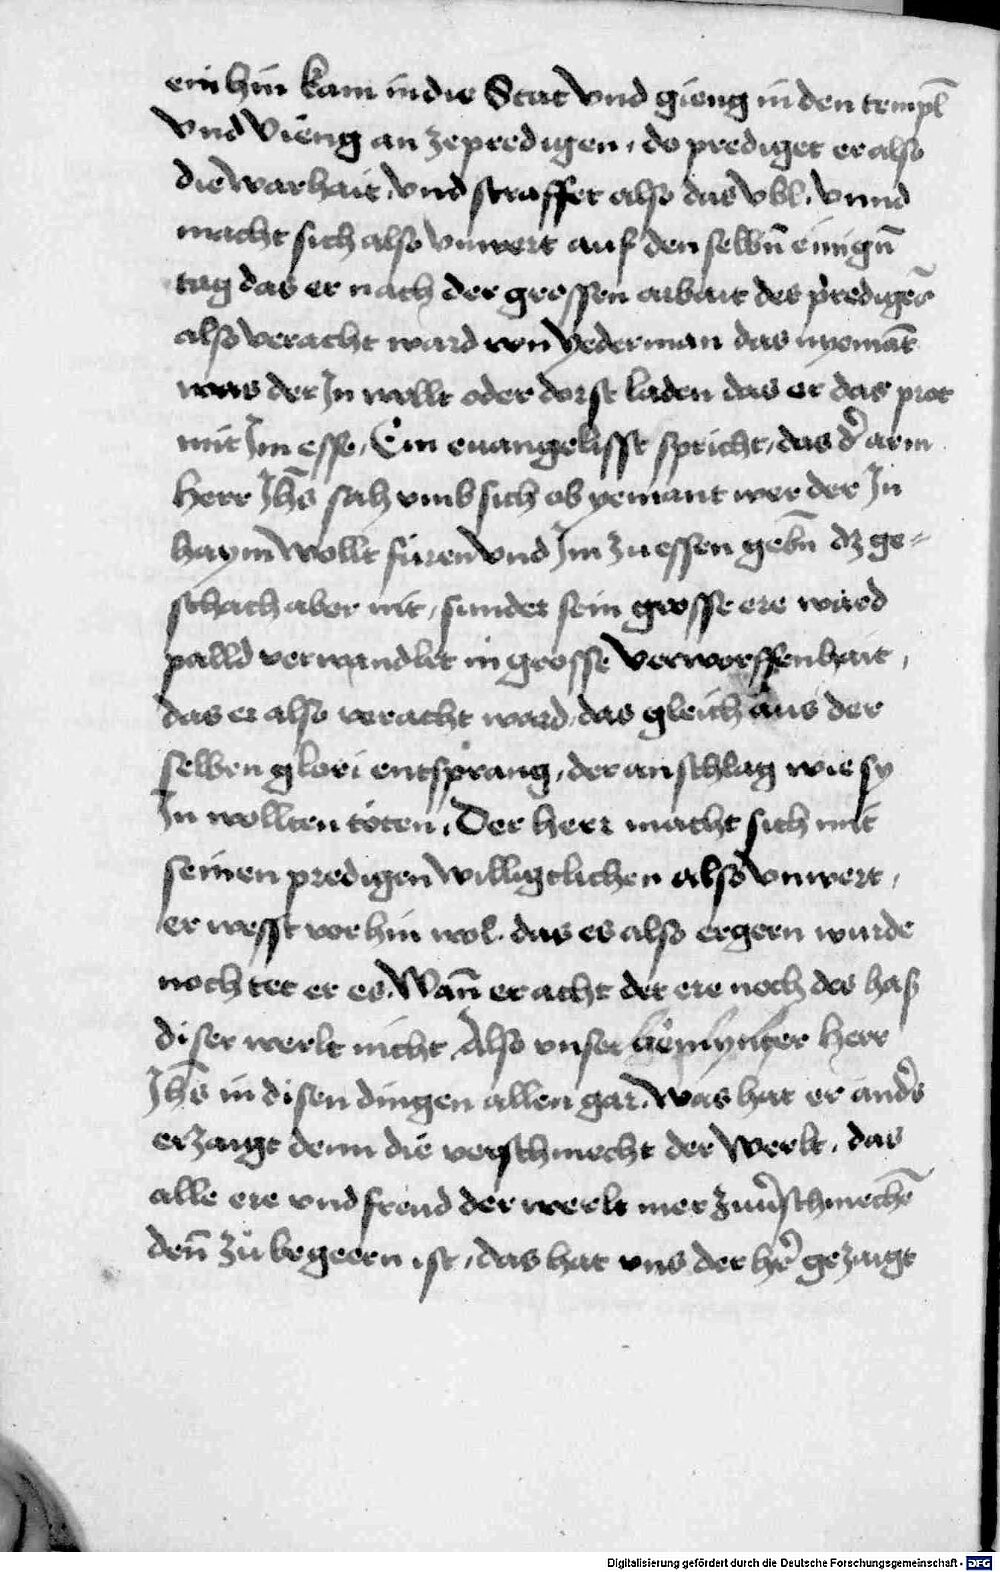 ein hin kam in die Stat vnd gieng in den templ
vnd vieng an ze predigen, do prediget er also
die warhait, vnd straffet also das vbl, vnnd
macht sich also vnwert auf den selbn̄ einign̄
tag das er nach der grossen arbait des predigēs
also veracht ward von yederman das nyemāt
was der Jn wollt oder dorst laden das er das prot
mit Jm esse, Ein euangelisst spricht, das d̓ arm
herr Jhs̄ sah vmb sich ob yemant wer der Jn
haym wollt füren vnd Jm zu essen gebn̄ dz ge-
schach aber nit, sunder sein grosse ere ward
palld verwandlet in grosse verworffenhait,
das er also veracht ward, das gleich aus der
selben glori entsprang, der anschlag wie sy
Jn wollten töten, Der herr macht sich mit
seinen predigen willigclichen also vnwert,
er wesst vor hin wol, das es also ergern wurde
noch tet er es, Wañ er acht der ere noch des hass
diser werlt nicht Also vnser herr
Jhs̄ in disen dingen allen gar, was hat er and̓s
erzaigt denn die verschmecht der werlt, das
alle ere vnd freud der werlt mer zuv̓schmechē
den̄ zů begeern ist, das hat vns der hr̄ gezaigt
Digitalisierung gefördert durch die Deutsche Forschungsgemeinschaft - DFG